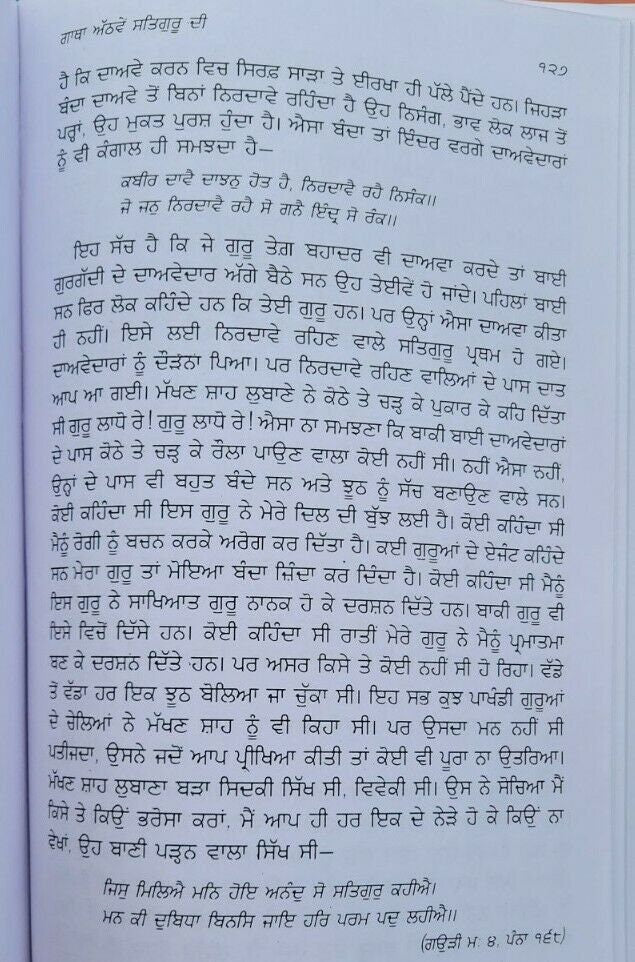 ਗਾਥਾ ਅੱਠਵੇਂ ਸਤਿਗੁਰੂ ਦੀ
੧੨੭
ਹੈ ਕਿ ਦਾਅਵੇ ਕਰਨ ਵਿਚ ਸਿਰਫ਼ ਸਾੜਾ ਤੇ ਈਰਖਾ ਹੀ ਪੱਲੇ ਪੈਂਦੇ ਹਨ। ਜਿਹੜਾ
ਬੰਦਾ ਦਾਅਵੇ ਤੋਂ ਬਿਨਾਂ ਨਿਰਦਾਵੇ ਰਹਿੰਦਾ ਹੈ ਉਹ ਨਿਸੰਗ, ਭਾਵ ਲੋਕ ਲਾਜ ਤੋਂ
ਪਰ੍ਹਾਂ, ਉਹ ਮੁਕਤ ਪੁਰਸ਼ ਹੁੰਦਾ ਹੈ। ਐਸਾ ਬੰਦਾ ਤਾਂ ਇੰਦਰ ਵਰਗੇ ਦਾਅਵੇਦਾਰਾਂ
ਨੂੰ ਵੀ ਕੰਗਾਲ ਹੀ ਸਮਝਦਾ ਹੈ—
ਕਬੀਰ ਦਾਵੈ ਦਾਝਨੁ ਹੋਤ ਹੈ, ਨਿਰਦਾਵੈ ਰਹੈ ਨਿਸੰਕ॥
ਜੋ ਜਨੁ ਨਿਰਦਾਵੈ ਰਹੈ ਸੋ ਗਨੈ ਇੰਦ੍ਰ ਸੋ ਰੰਕ॥
ਇਹ ਸੱਚ ਹੈ ਕਿ ਜੇ ਗੁਰੂ ਤੇਗ ਬਹਾਦਰ ਵੀ ਦਾਅਵਾ ਕਰਦੇ ਤਾਂ ਬਾਈ
ਗੁਰਗੱਦੀ ਦੇ ਦਾਅਵੇਦਾਰ ਅੱਗੇ ਬੈਠੇ ਸਨ ਉਹ ਤੇਈਵੇਂ ਹੋ ਜਾਂਦੇ। ਪਹਿਲਾਂ ਬਾਈ
ਸਨ ਫਿਰ ਲੋਕ ਕਹਿੰਦੇ ਹਨ ਕਿ ਤੇਈ ਗੁਰੂ ਹਨ। ਪਰ ਉਨ੍ਹਾਂ ਐਸਾ ਦਾਅਵਾ ਕੀਤਾ
ਹੀ ਨਹੀਂ। ਇਸੇ ਲਈ ਨਿਰਦਾਵੇ ਰਹਿਣ ਵਾਲੇ ਸਤਿਗੁਰੂ ਪ੍ਰਥਮ ਹੋ ਗਏ।
ਦਾਅਵੇਦਾਰਾਂ ਨੂੰ ਦੌੜਨਾ ਪਿਆ। ਪਰ ਨਿਰਦਾਵੇ ਰਹਿਣ ਵਾਲਿਆਂ ਦੇ ਪਾਸ ਦਾਤ
ਆਪ ਆ ਗਈ। ਮੱਖਣ ਸ਼ਾਹ ਲੁਬਾਣੇ ਨੇ ਕੋਠੇ ਤੇ ਚੜ੍ਹ ਕੇ ਪੁਕਾਰ ਕੇ ਕਹਿ ਦਿੱਤਾ
ਸੀ ਗੁਰੂ ਲਾਧੋ ਰੇ! ਗੁਰੂ ਲਾਧੋ ਰੇ! ਐਸਾ ਨਾ ਸਮਝਣਾ ਕਿ ਬਾਕੀ ਬਾਈ ਦਾਅਵੇਦਾਰਾਂ
ਦੇ ਪਾਸ ਕੋਠੇ ਤੇ ਚੜ੍ਹ ਕੇ ਰੌਲਾ ਪਾਉਣ ਵਾਲਾ ਕੋਈ ਨਹੀਂ ਸੀ। ਨਹੀਂ ਐਸਾ ਨਹੀਂ,
ਉਨ੍ਹਾਂ ਦੇ ਪਾਸ ਵੀ ਬਹੁਤ ਬੰਦੇ ਸਨ ਅਤੇ ਝੂਠ ਨੂੰ ਸੱਚ ਬਣਾਉਣ ਵਾਲੇ ਸਨ।
ਕੋਈ ਕਹਿੰਦਾ ਸੀ ਇਸ ਗੁਰੂ ਨੇ ਮੇਰੇ ਦਿਲ ਦੀ ਬੁੱਝ ਲਈ ਹੈ। ਕੋਈ ਕਹਿੰਦਾ ਸੀ
ਮੈਨੂੰ ਰੋਗੀ ਨੂੰ ਬਚਨ ਕਰਕੇ ਅਰੋਗ ਕਰ ਦਿੱਤਾ ਹੈ। ਕਈ ਗੁਰੂਆਂ ਦੇ ਏਜੰਟ ਕਹਿੰਦੇ
ਸਨ ਮੇਰਾ ਗੁਰੂ ਤਾਂ ਮੋਇਆ ਬੰਦਾ ਜ਼ਿੰਦਾ ਕਰ ਦਿੰਦਾ ਹੈ। ਕੋਈ ਕਹਿੰਦਾ ਸੀ ਮੈਨੂੰ
ਇਸ ਗੁਰੂ ਨੇ ਸਾਖਿਆਤ ਗੁਰੂ ਨਾਨਕ ਹੋ ਕੇ ਦਰਸ਼ਨ ਦਿੱਤੇ ਹਨ। ਬਾਕੀ ਗੁਰੂ ਵੀ
ਇਸੇ ਵਿਚੋਂ ਦਿੱਸੇ ਹਨ। ਕੋਈ ਕਹਿੰਦਾ ਸੀ ਰਾਤੀਂ ਮੇਰੇ ਗੁਰੂ ਨੇ ਮੈਨੂੰ ਪ੍ਰਮਾਤਮਾ
ਬਣ ਕੇ ਦਰਸ਼ਨ ਦਿੱਤੇ ਹਨ। ਪਰ ਅਸਰ ਕਿਸੇ ਤੇ ਕੋਈ ਨਹੀਂ ਸੀ ਹੋ ਰਿਹਾ। ਵੱਡੇ
ਤੋਂ ਵੱਡਾ ਹਰ ਇਕ ਝੂਠ ਬੋਲਿਆ ਜਾ ਚੁੱਕਾ ਸੀ। ਇਹ ਸਭ ਕੁਝ ਪਾਖੰਡੀ ਗੁਰੂਆਂ
ਦੇ ਚੇਲਿਆਂ ਨੇ ਮੱਖਣ ਸ਼ਾਹ ਨੂੰ ਵੀ ਕਿਹਾ ਸੀ। ਪਰ ਉਸਦਾ ਮਨ ਨਹੀਂ ਸੀ
ਪਤੀਜਦਾ, ਉਸਨੇ ਜਦੋਂ ਆਪ ਪ੍ਰੀਖਿਆ ਕੀਤੀ ਤਾਂ ਕੋਈ ਵੀ ਪੂਰਾ ਨਾ ਉਤਰਿਆ।
ਮੱਖਣ ਸ਼ਾਹ ਲੁਬਾਣਾ ਬੜਾ ਸਿਦਕੀ ਸਿੱਖ ਸੀ, ਵਿਵੇਕੀ ਸੀ। ਉਸ ਨੇ ਸੋਚਿਆ ਮੈਂ
ਕਿਸੇ ਤੇ ਕਿਉਂ ਭਰੋਸਾ ਕਰਾਂ, ਮੈਂ ਆਪ ਹੀ ਹਰ ਇਕ ਦੇ ਨੇੜੇ ਹੋ ਕੇ ਕਿਉਂ ਨਾ
ਵੇਖਾਂ, ਉਹ ਬਾਣੀ ਪੜ੍ਹਨ ਵਾਲਾ ਸਿੱਖ ਸੀ—
ਜਿਸੁ ਮਿਲਿਐ ਮਨਿ ਹੋਇ ਅਨੰਦੁ ਸੋ ਸਤਿਗੁਰੁ ਕਹੀਐ।
ਮਨ ਕੀ ਦੁਬਿਧਾ ਬਿਨਸਿ ਜਾਇ ਹਰਿ ਪਰਮ ਪਦੁ ਲਹੀਐ॥
(ਗਉੜੀ ਮ: ੪, ਪੰਨਾ ੧੬੮)